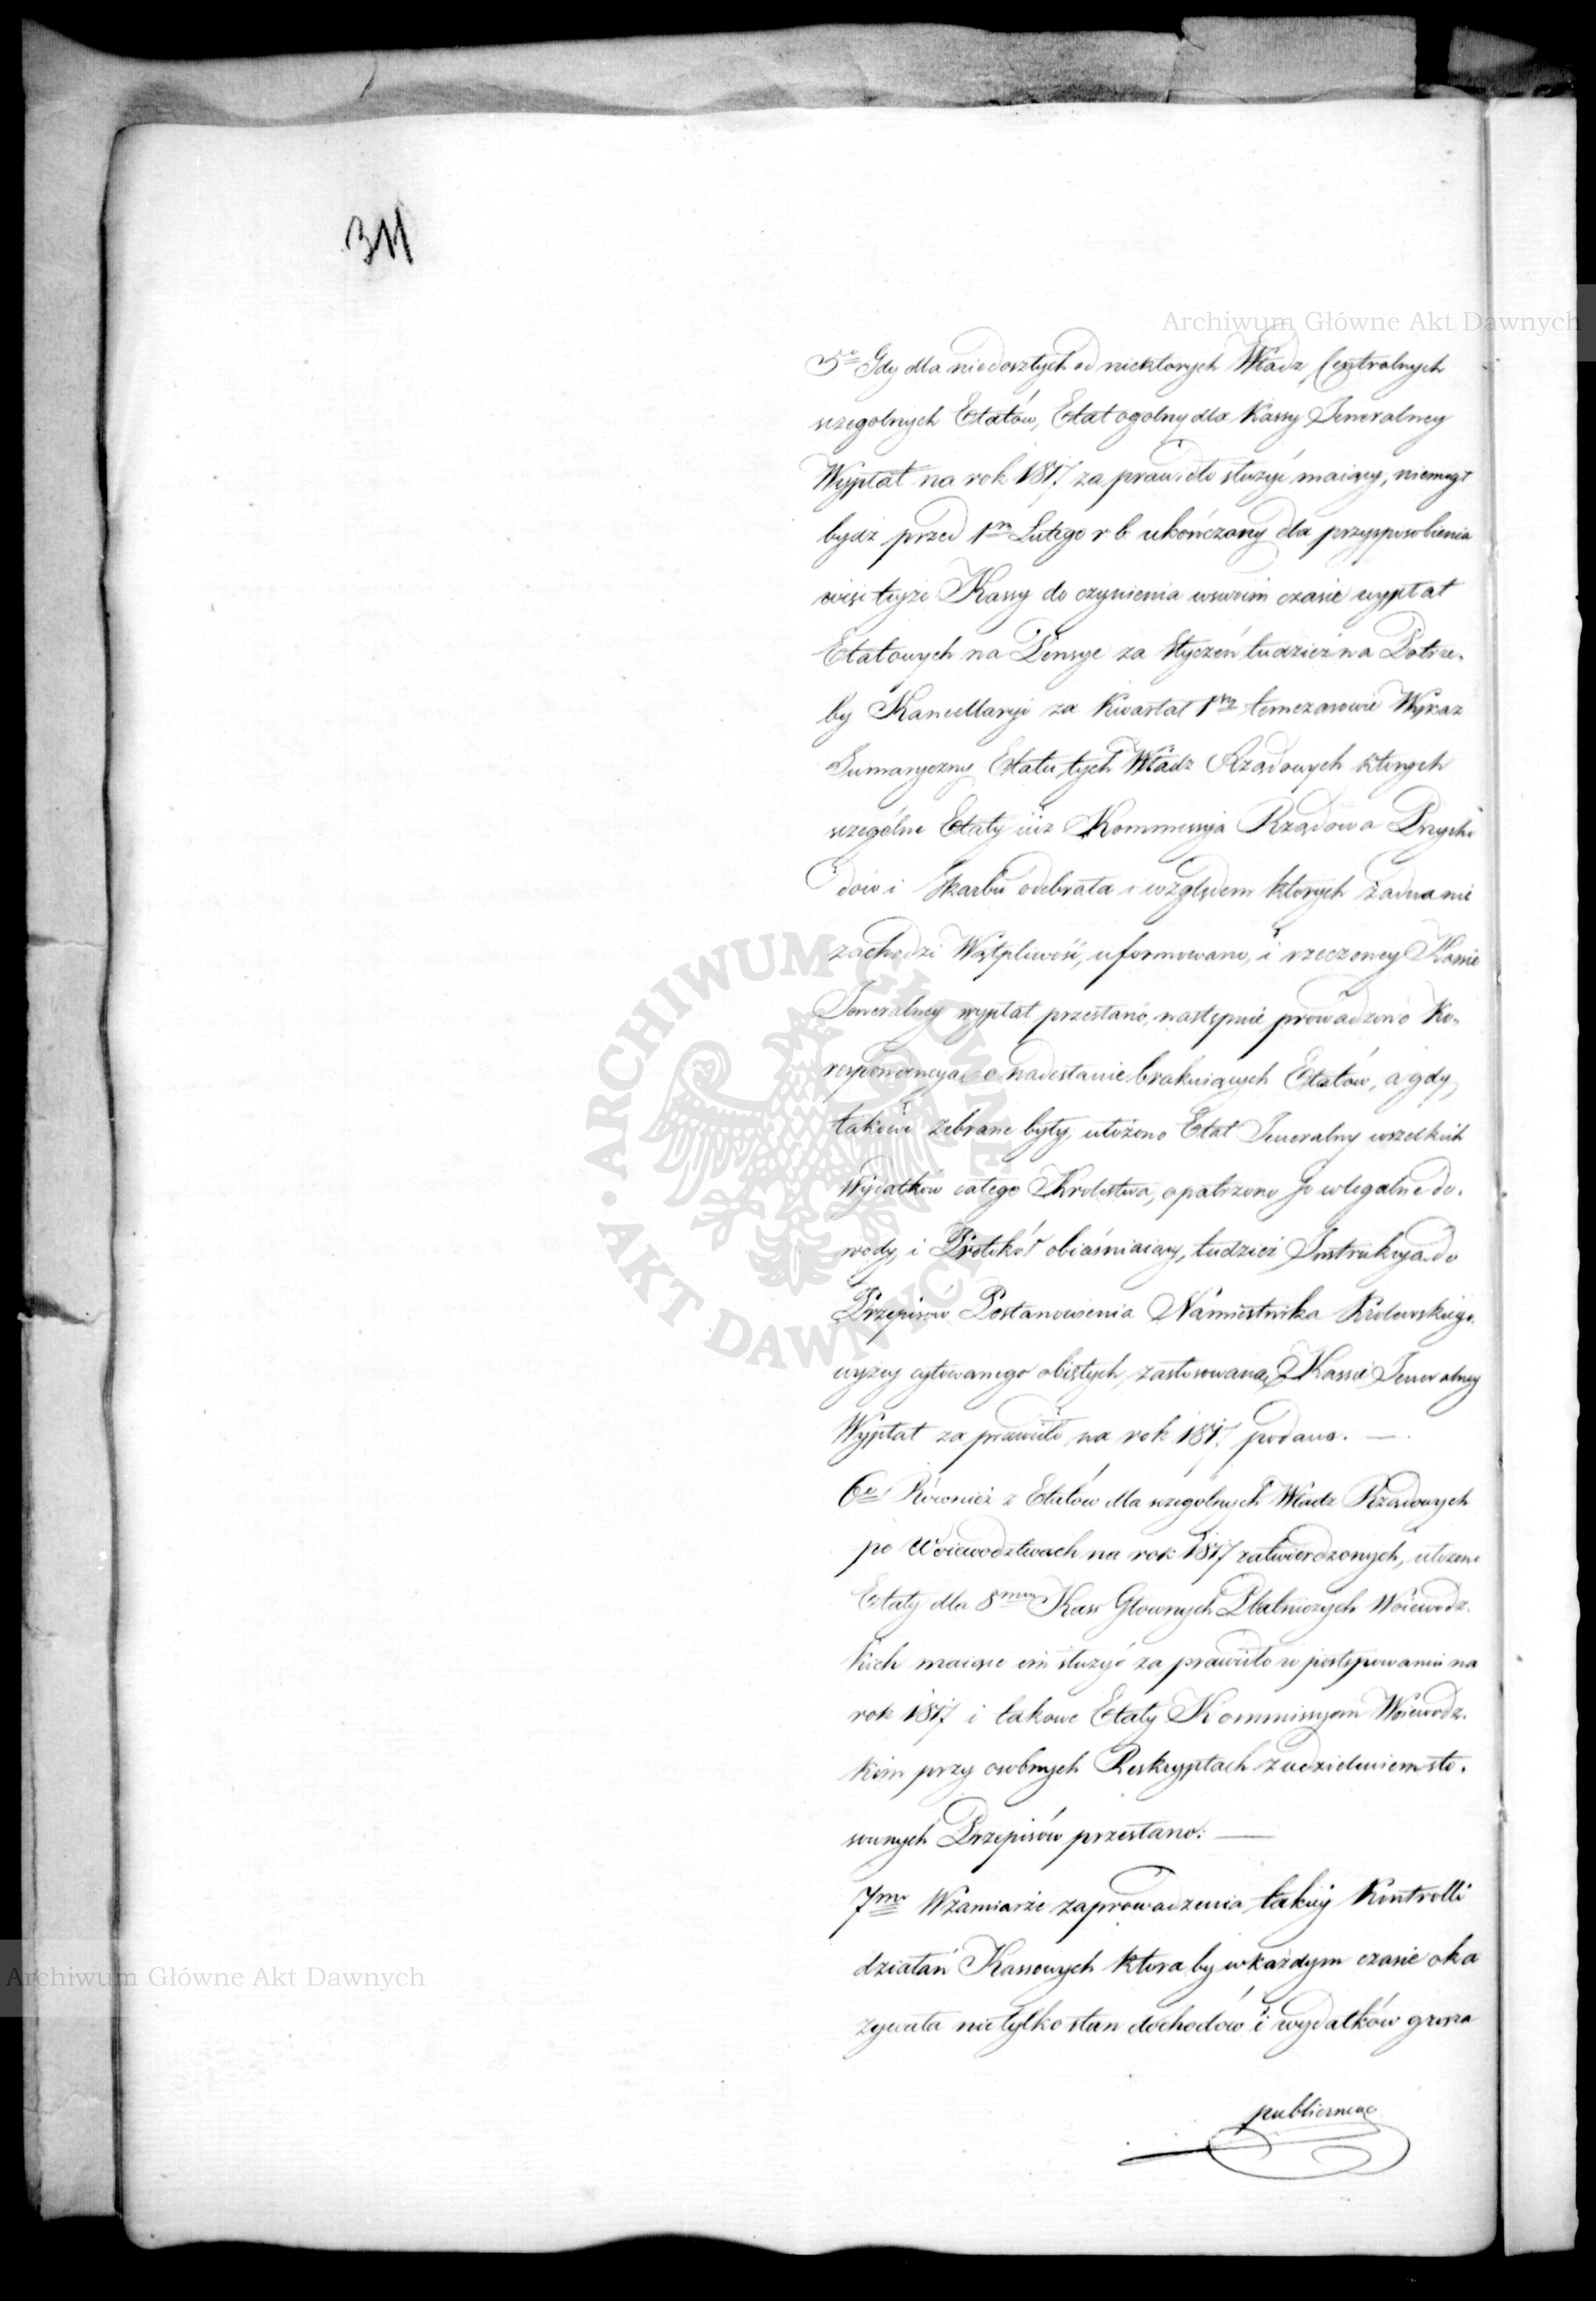 311
Archiwum Główne Akt Dawnych
5o Gdy dla niedoszłych od niektorych Władz Centralnych
szegolnych Etatów, Etat ogolny dla Kassy Jeneralney
Wypłat na rok 1817 za prawidło służyć maiący, niemógł
bydź przed 1m Lutego r b ukończony dla przysposobienia
więc teyże Kassy do czynienia wswoim czasie wypłat
Etatowych na Pensye za Styczeń tudzież na Potrze-
by Kancellaryi za Kwartał 1szy temczasowie Wykaz
Sumaryczny Etatu tych Władz Rządowych ktorych
szególne Etaty iuż Kommissyja Rządowa Przycho
dów i Skarbu odebrała i względem ktorych żadna nie
zachodzi Wątpliwość, uformowano, i rzeczoney Kassie
Jeneralney wypłat przesłano, następnie prowadzono Ko-
respondencyją o nadesłanie brakuiących Etatów, a gdy
takowe zebrane były, ułożono Etat Jeneralny wszelkich
Wydatków całego Krolestwa, opatrzono go w legalne do-
wody, i Protokół obiaśniaiący, tudzież Instrukcyja do
Przepisów Postanowienia Namiestnika Krolewskiego
wyżey cytowanego obiętych, zastosowaną Kassie Jeneralney
Wypłat za prawidło na rok 1817. podano. —
6o Również z Etatów dla szegolnych Władz Rządowych
po Woiewodztwach na rok 1817 zatwierdzonych, ułożono
Etaty dla 8miu Kass Głownych Płatniczych Woiewodz-
kich maiące im służyć za prawidło w postępowaniu na
rok 1817 i takowe Etaty Kommissyom Woiewodz-
kim przy osobnych Reskryptach z udzieleniem sto-
sownych Przepisów przesłano. —
7mo Wzamiarze zaprowadzenia takiey Kontrolli
działań Kassowych ktora by w każdym czasie oka
zywała nie tylko stan dochodów i wydatków grosza
publicznego
Archiwum Główne Akt Dawnych
ARCHIWUM GŁÓWNE AKT DAWNYCH